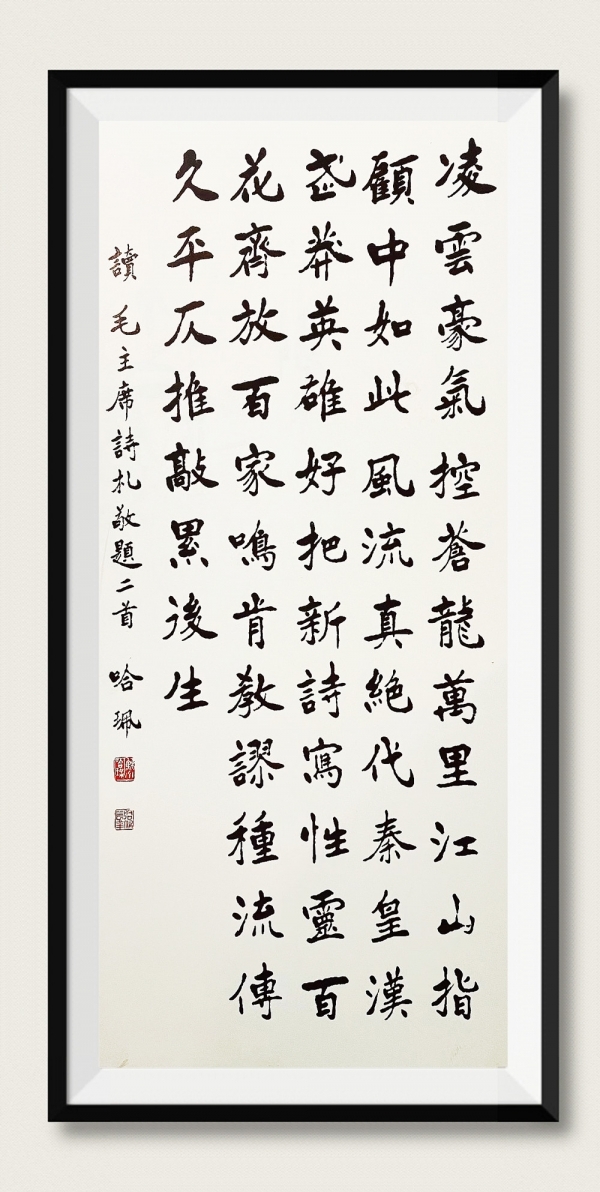 凌雲豪氣控蒼龍萬里江山指
顧中如此風流真絕代秦皇漢
武莽英雄好把新詩寫性靈百
花齊放百家鳴肯教謬種流傳
久平仄推敲累後生
讀毛主席詩札敬題二首 哈珮